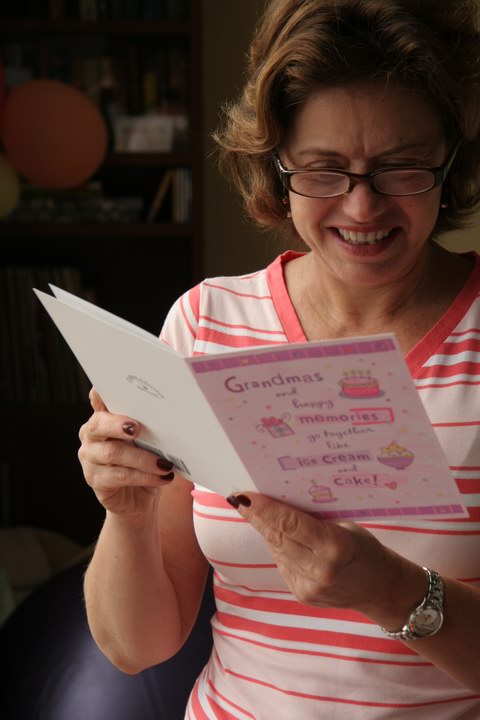 Grandmas
and
happy
memories
go together
like
ice cream
and
cake!